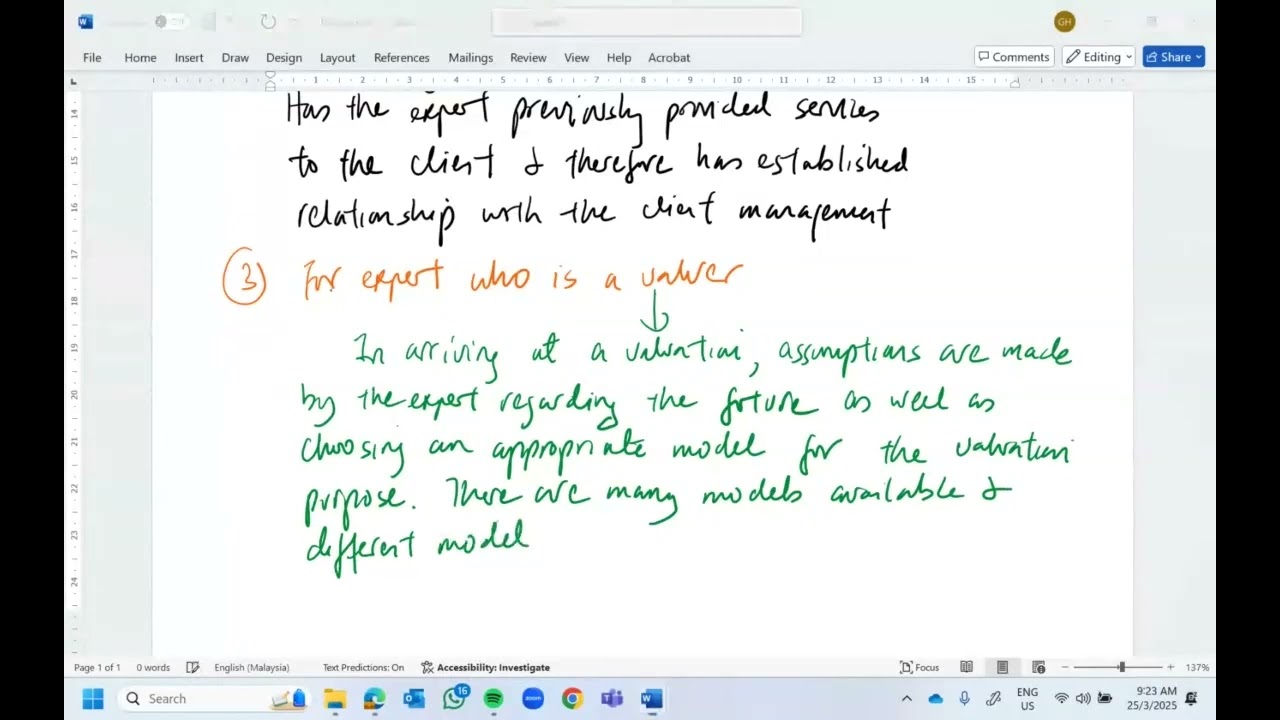 GH
File Home Insert Draw Design Layout References Mailings Review View Help Acrobat Comments Editing Share
1 2 3 4 5 6 7 8 9 10 11 12 13 14 15
14
15
16
17
18
19
20
21
22
23
24
Has the expert previously provided services
to the client & therefore has established
relationship with the client management
3) For expert who is a valuer
In arriving at a valuation, assumptions are made
by the expert regarding the future as well as
choosing an appropriate model for the valuation
purpose. There are many models available &
different model
Page 1 of 1 0 words English (Malaysia) Text Predictions: On Accessibility: Investigate Focus 137%
Search 16 zoom ENG 9:23 AM
US 25/3/2025